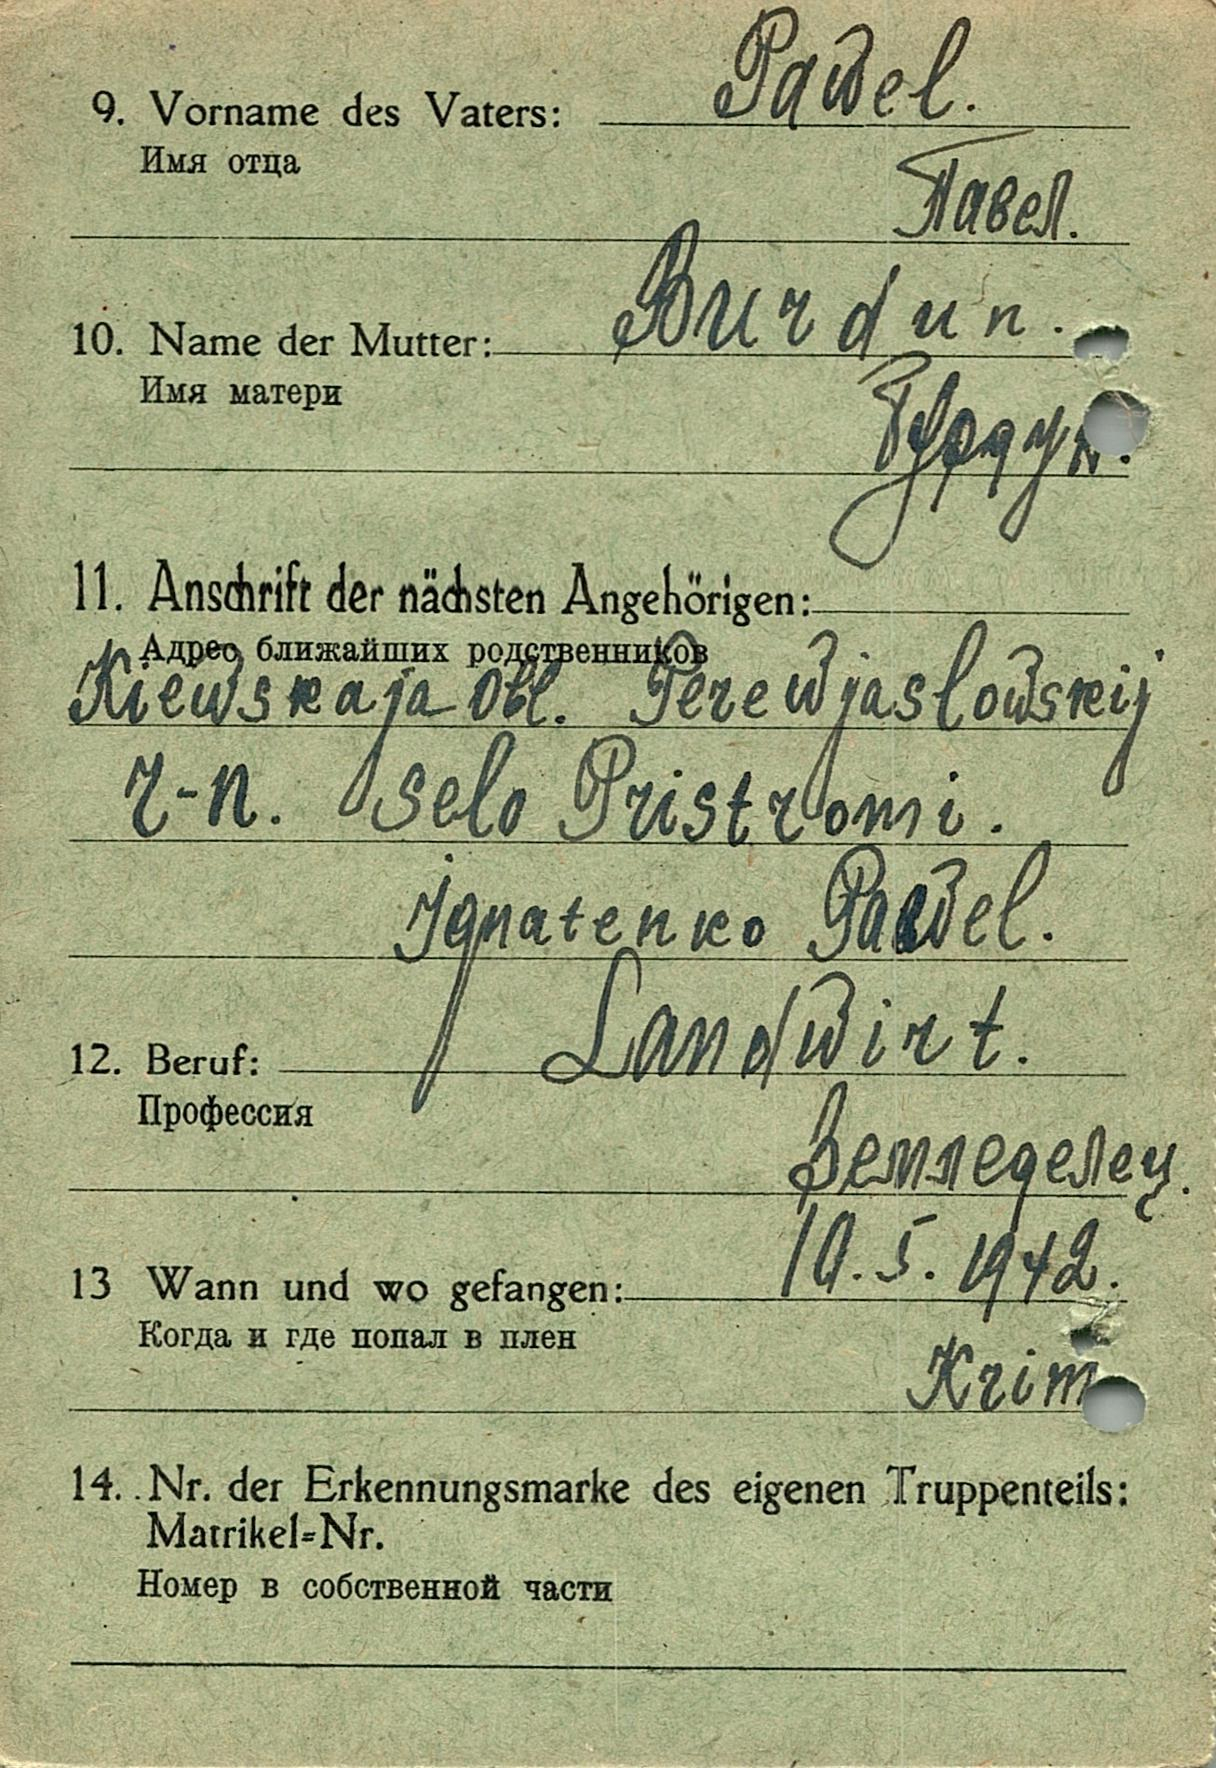 9. Vorname des Vaters: Pawel.
Имя отца
Павел.
10. Name der Mutter: Burdun.
Имя матери
Бурдун.
11. Anschrift der nächsten Angehörigen:
Адрес ближайших родственников
Kiewskaja Obl. Perewjaslowskij
r-n. selo Pristromi.
Ignatenko Pawel.
12. Beruf: Landwirt.
Профессия
Земледелец.
13 Wann und wo gefangen: 10.5.1942.
Когда и где попал в плен
Krim
14. Nr. der Erkennungsmarke des eigenen Truppenteils:
Matrikel=Nr.
Номер в собственной части